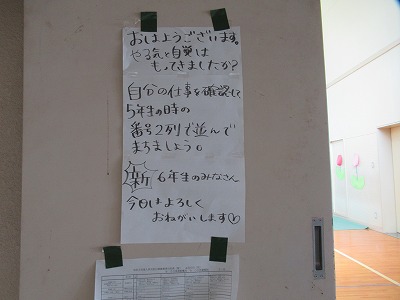 おはようございます。
やる気と自覚は
もってきましたか?
自分の仕事を確認して
5年生の時の
番号2列で並んで
まちましょう。
新 6年生のみなさん
今日はよろしく
おねがいします♡